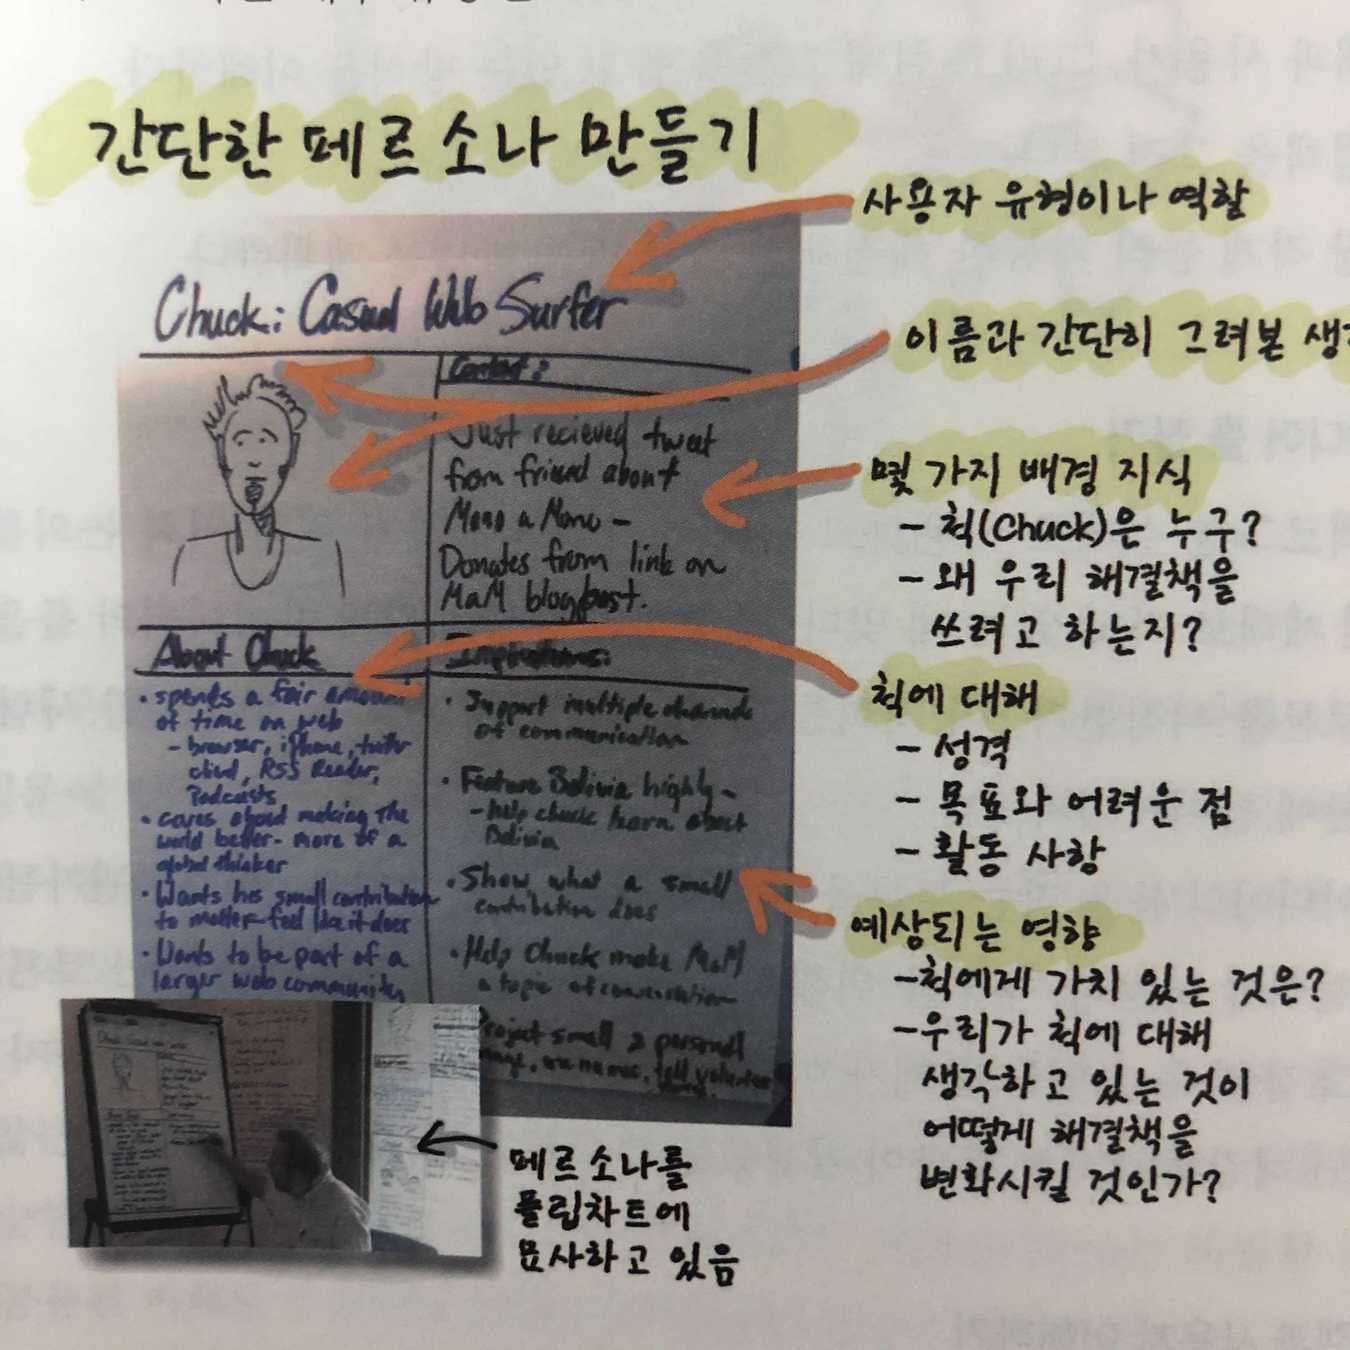 간단한 페르소나 만들기
사용자 유형이나 역할
Chuck: Casual Web Surfer
이름과 간단히 그려본
Context:
Just recieved tweet
from friend about
Mono a Mono -
Donates from link on
MaM blog post.
몇 가지 배경 지식
- 척(Chuck)은 누구?
- 왜 우리 해결책을
쓰려고 하는지?
About Chuck
• spends a fair amount
of time on web
- browser, iphone, twitter
client, RSS Reader,
Podcasts
• cares about making the
world better - more of a
global thinker
• Wants his small contribution
to matter - feel like it does
• Wants to be part of a
larger web community
Implications:
• Support multiple channels
of communication
• Feature Bolivia highly -
- help chuck learn about
Bolivia
• Show what a small
contribution does
• Help Chuck make MaM
a topic of conversation
Project small & personal
척에 대해
- 성격
- 목표와 어려운 점
- 활동 사항
예상되는 영향
- 척에게 가치 있는 것은?
- 우리가 척에 대해
생각하고 있는 것이
어떻게 해결책을
변화시킬 것인가?
페르소나를
플립차트에
묘사하고 있음